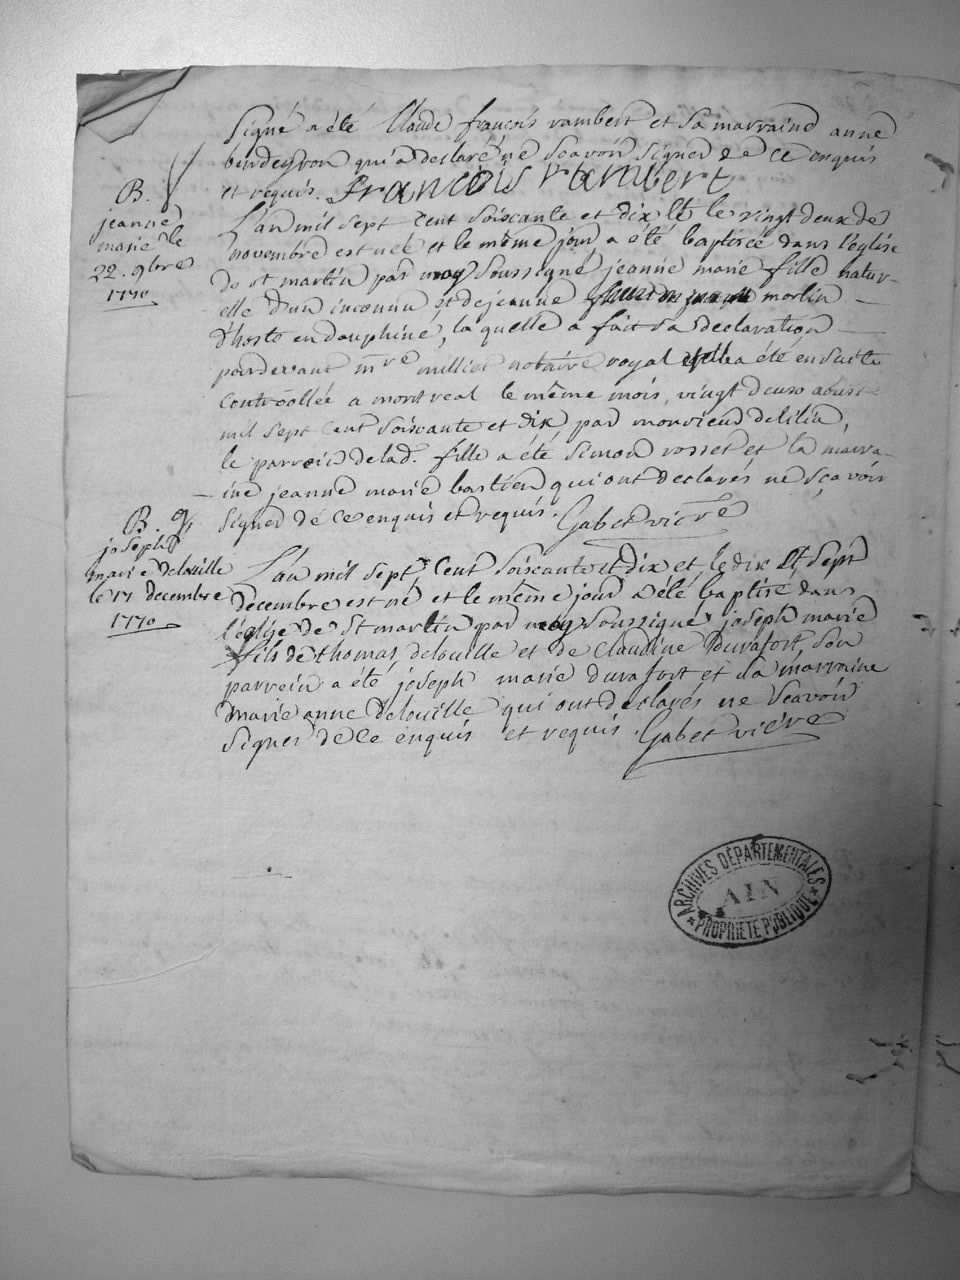 signé a été Claude françois rambert et sa marraine anne
bendeyron qui a declaré ne scavoir signer de ce enquis
et requis. François rambert
B.
jeanne
marie le
22. 9bre
1770
L'an mil sept cent soiscante et dix et le vingt deux de
novembre est née et le même jour a été baptisée dans l'église
de st martin par moy soussigné jeanne marie fille natur-
elle d'un inconnu et de jeanne morlin
d'hoste en dauphine, la quelle a fait sa declaration
pardevant mre milliet notaire royal a été en suite
controollée a montreal le même mois, vingt deux aoust
mil sept cent soiscante et dix par monsieur delilia,
le parrein de lad. fille a été simon rosset et la marra-
ine jeanne marie bastien qui ont declarés ne sçavoir
signer de ce enquis et requis. Gabet vicre
B.
joseph
marie delouille
le 17 decembre
1770
L'an mil sept cent soiscante et dix et le dix et sept
decembre est né et le même jour a été baptisé dans
l'église de St martin par moy soussigné joseph marie
fils de thomas delouille et de claudine Durafort, son
parrein a été joseph marie durafort et sa marraine
marie anne delouille qui ont declarés ne scavoir
signer de ce enquis et requis. Gabet vicre
ARCHIVES DÉPARTEMENTALES
AIN
PROPRIÉTÉ PUBLIQUE